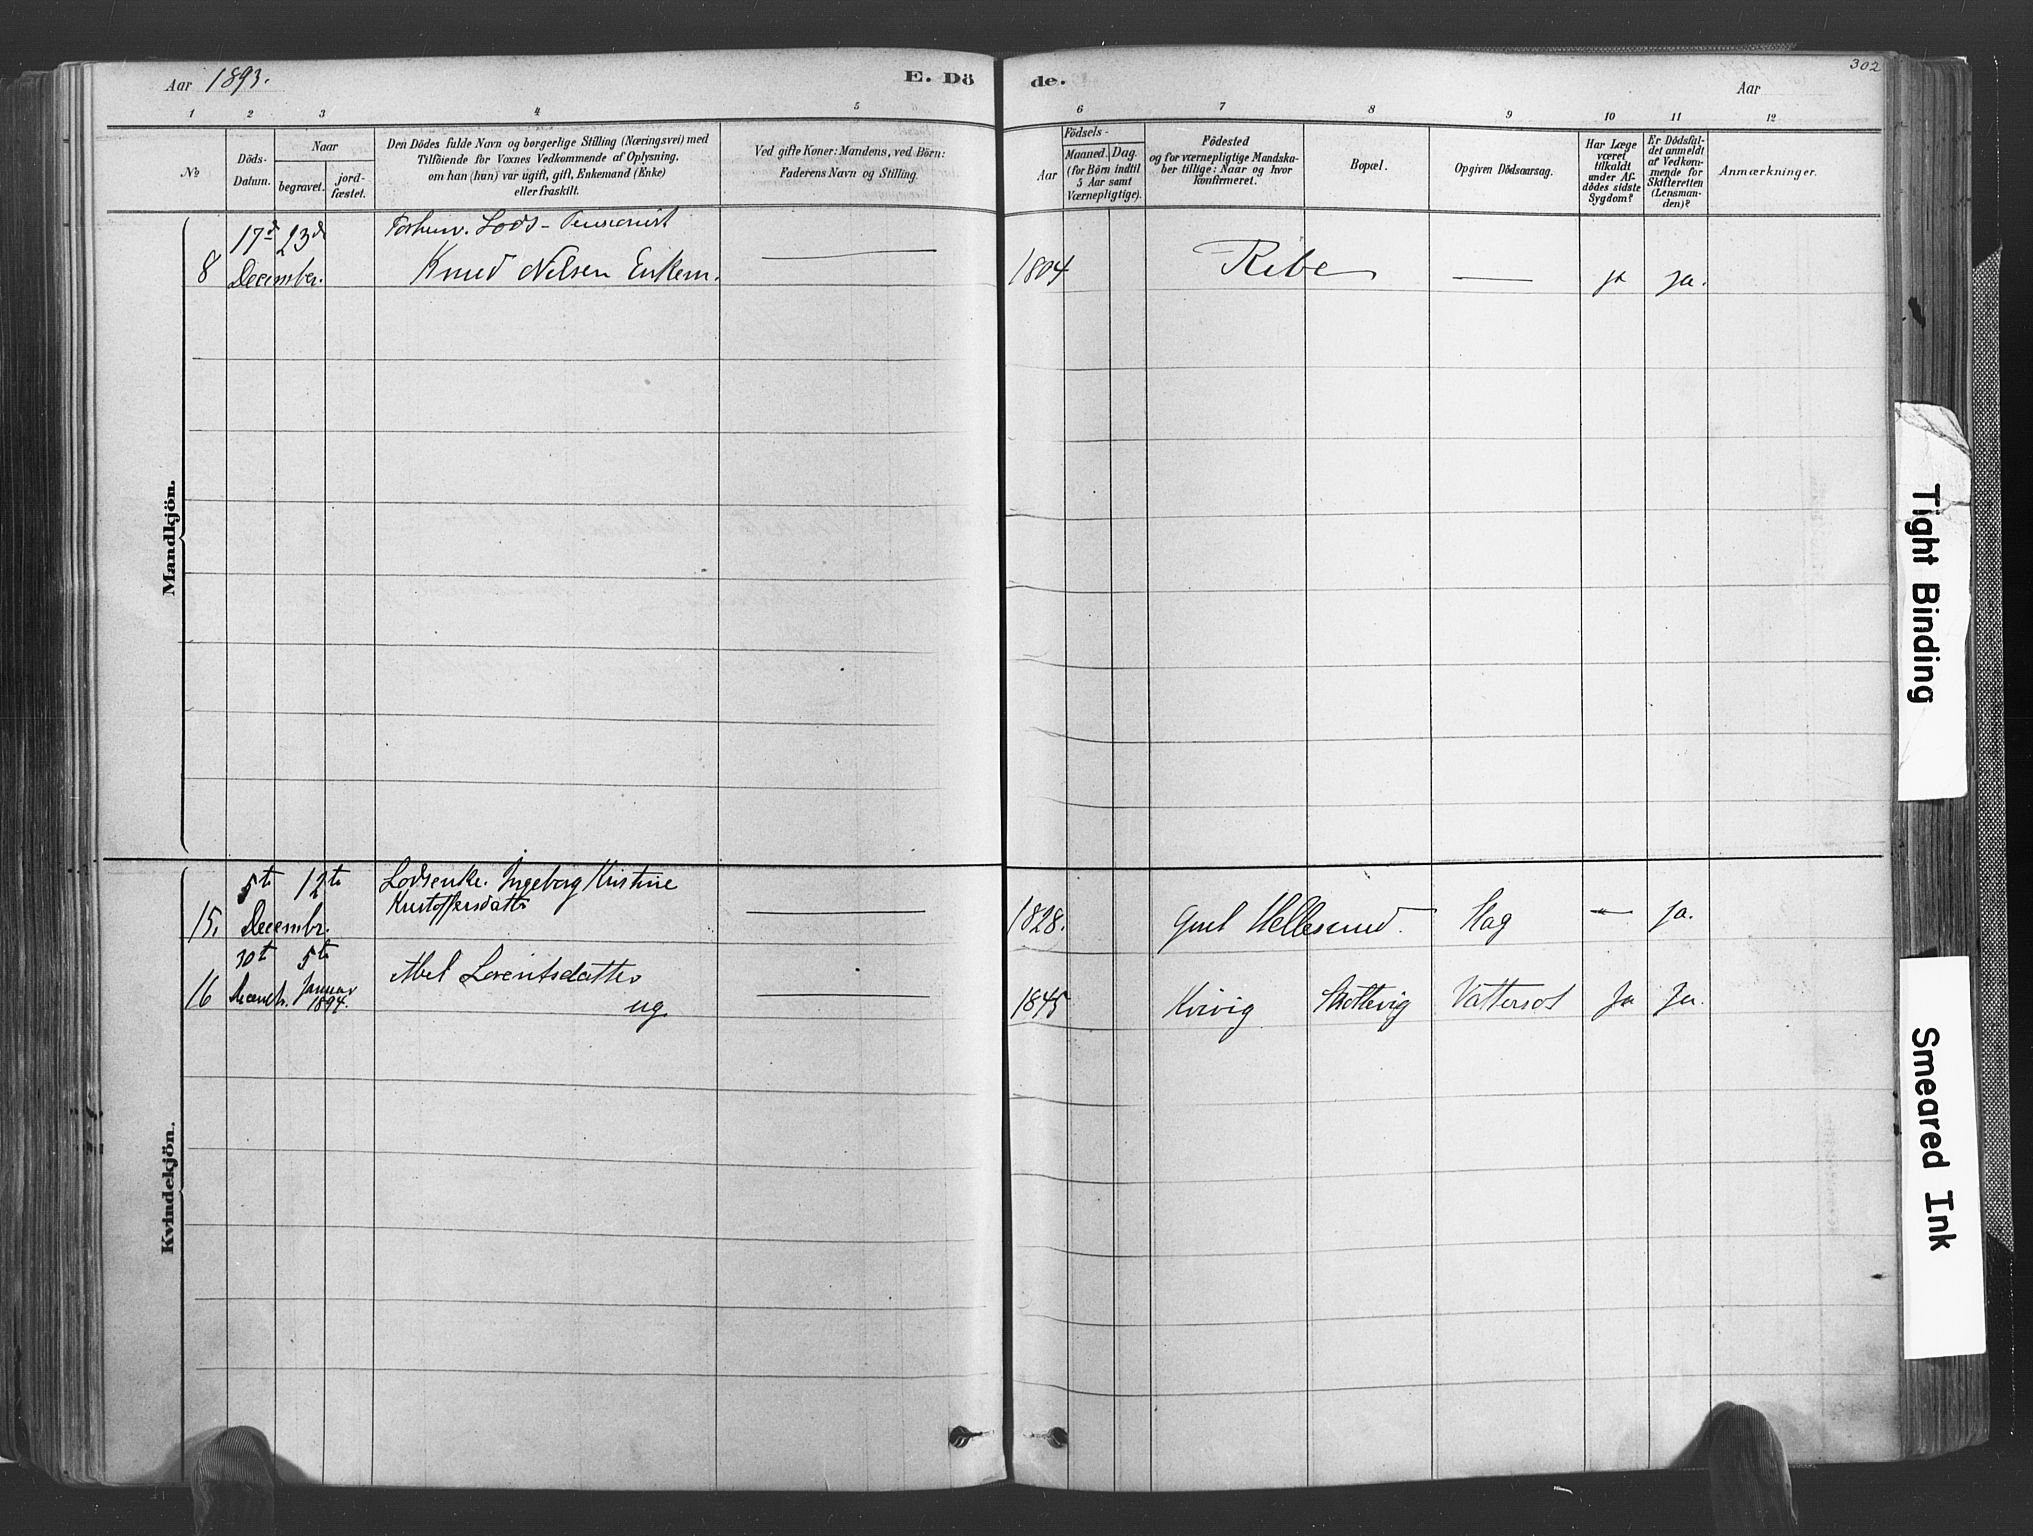 Aar 1893.
E. Dö
de.
302
Aar
1 2 3 4 5 6 7 8 9 10 11 12
No
Döds-
Datum.
Naar
begravet.
jord-
fæstet.
Den Dödes fulde Navn og borgerlige Stilling (Næringsvei) med
Tilföiende for Voxnes Vedkommende af Oplysning,
om han (hun) var ugift, gift, Enkemand (Enke)
eller fraskilt.
Ved gifte Koner: Mandens, ved Börn:
Faderens Navn og Stilling.
Födsels-
Aar
Maaned.
Dag.
(for Börn indtil
5 Aar samt
Værnepligtige).
Födested
og for værnepligtige Mandska-
ber tillige: Naar og hvor
konfirmeret.
Bopæl.
Opgiven Dödsaarsag.
Har Læge
været
tilkaldt
under Af-
dödes sidste
Sygdom?
Er Dödsfal-
det anmeldt
af Vedkom-
mende for
Skifteretten
(Lensman-
den)?
Anmærkninger.
Mandkjön.
17d 23d Forhenv. Lods-Pensionist
8 December. Knud Nilsen Enkem. 1804 Ribe ja ja.
Kvindekjön.
5te 12te Lodsenke. Ingeborg Kristine
15. Decembr. Kristoffersdatter 1828. Hellesund. Slag - ja.
30t 5te Abel Lorentsdatter
16 Decembr. Januar
1894. ug 1845 Kvivig Skottevig Vattersot Ja Ja.
Tight Binding
Smeared Ink